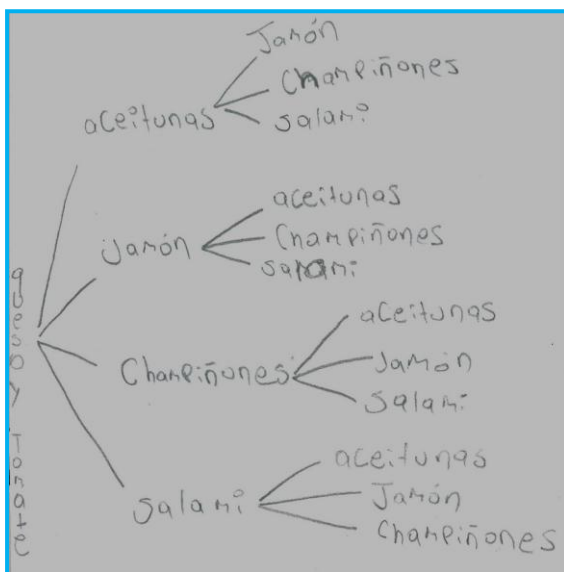 queso y Tomate
aceitunas
Jamón
Champiñones
Salami
Jamón
aceitunas
Champiñones
Salami
Champiñones
aceitunas
Jamón
Salami
Salami
aceitunas
Jamón
Champiñones